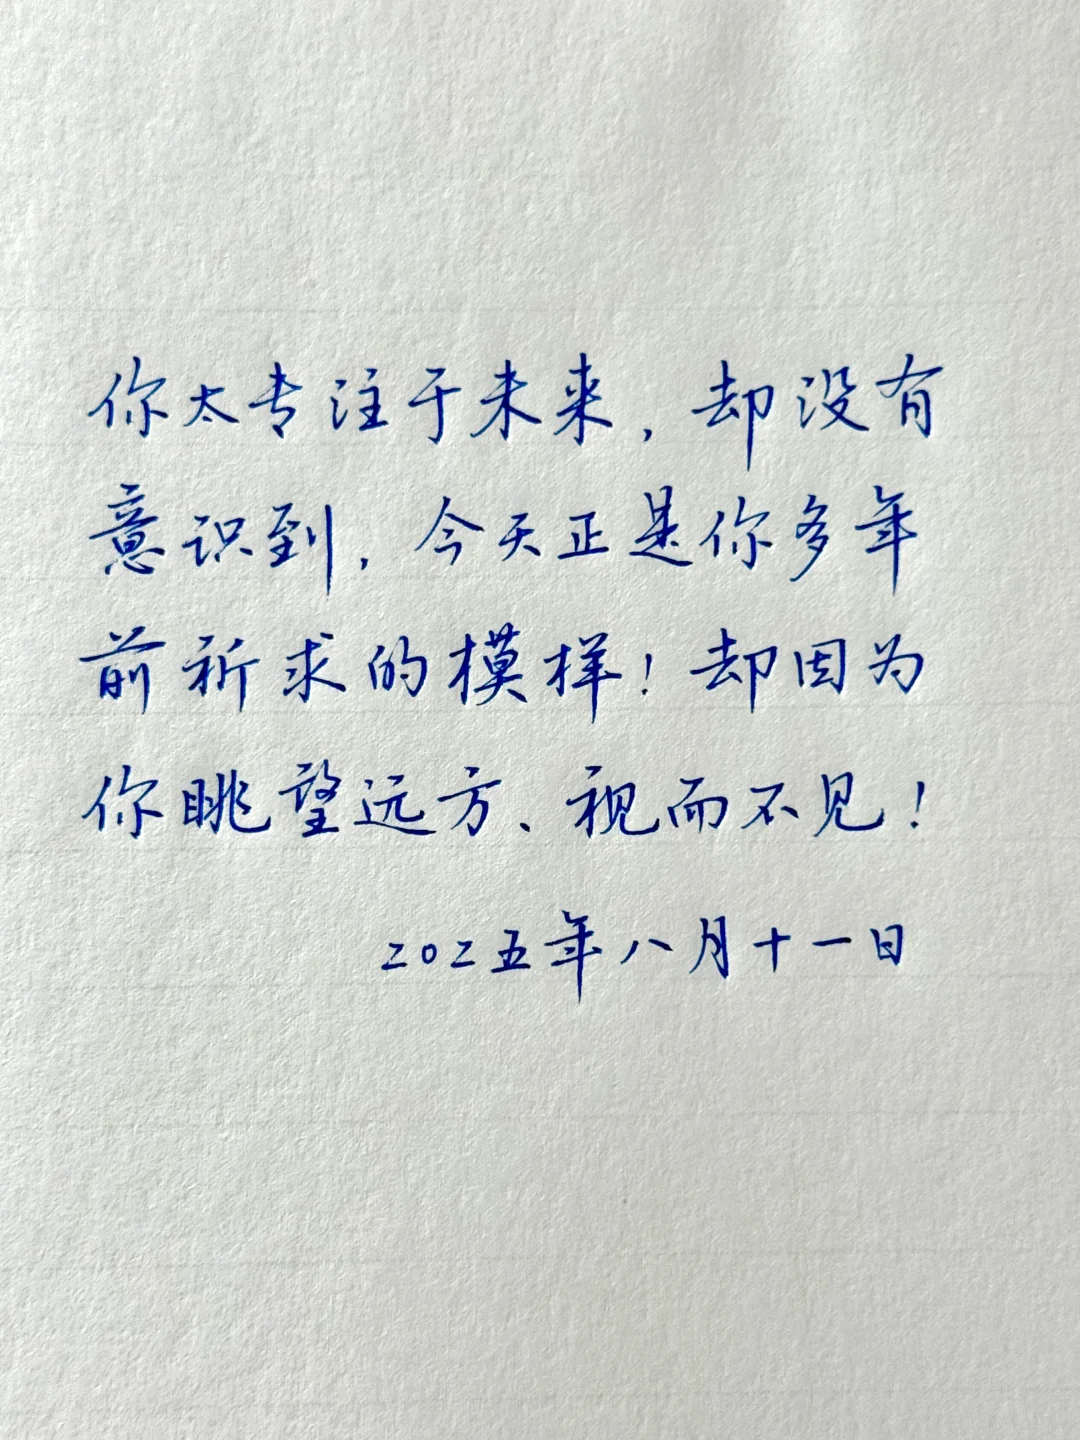 你太专注于未来，却没有
意识到，今天正是你多年
前祈求的模样！却因为
你眺望远方、视而不见！
二〇二五年八月十一日